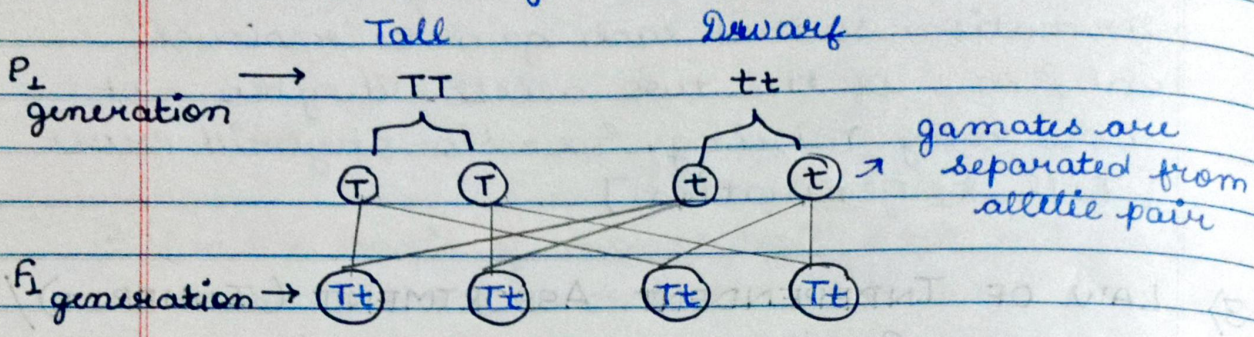 Tall Dwarf
P1 generation → TT tt
T T t t ↗ gamates are
separated from
alletic pair
F1 generation → Tt Tt Tt Tt